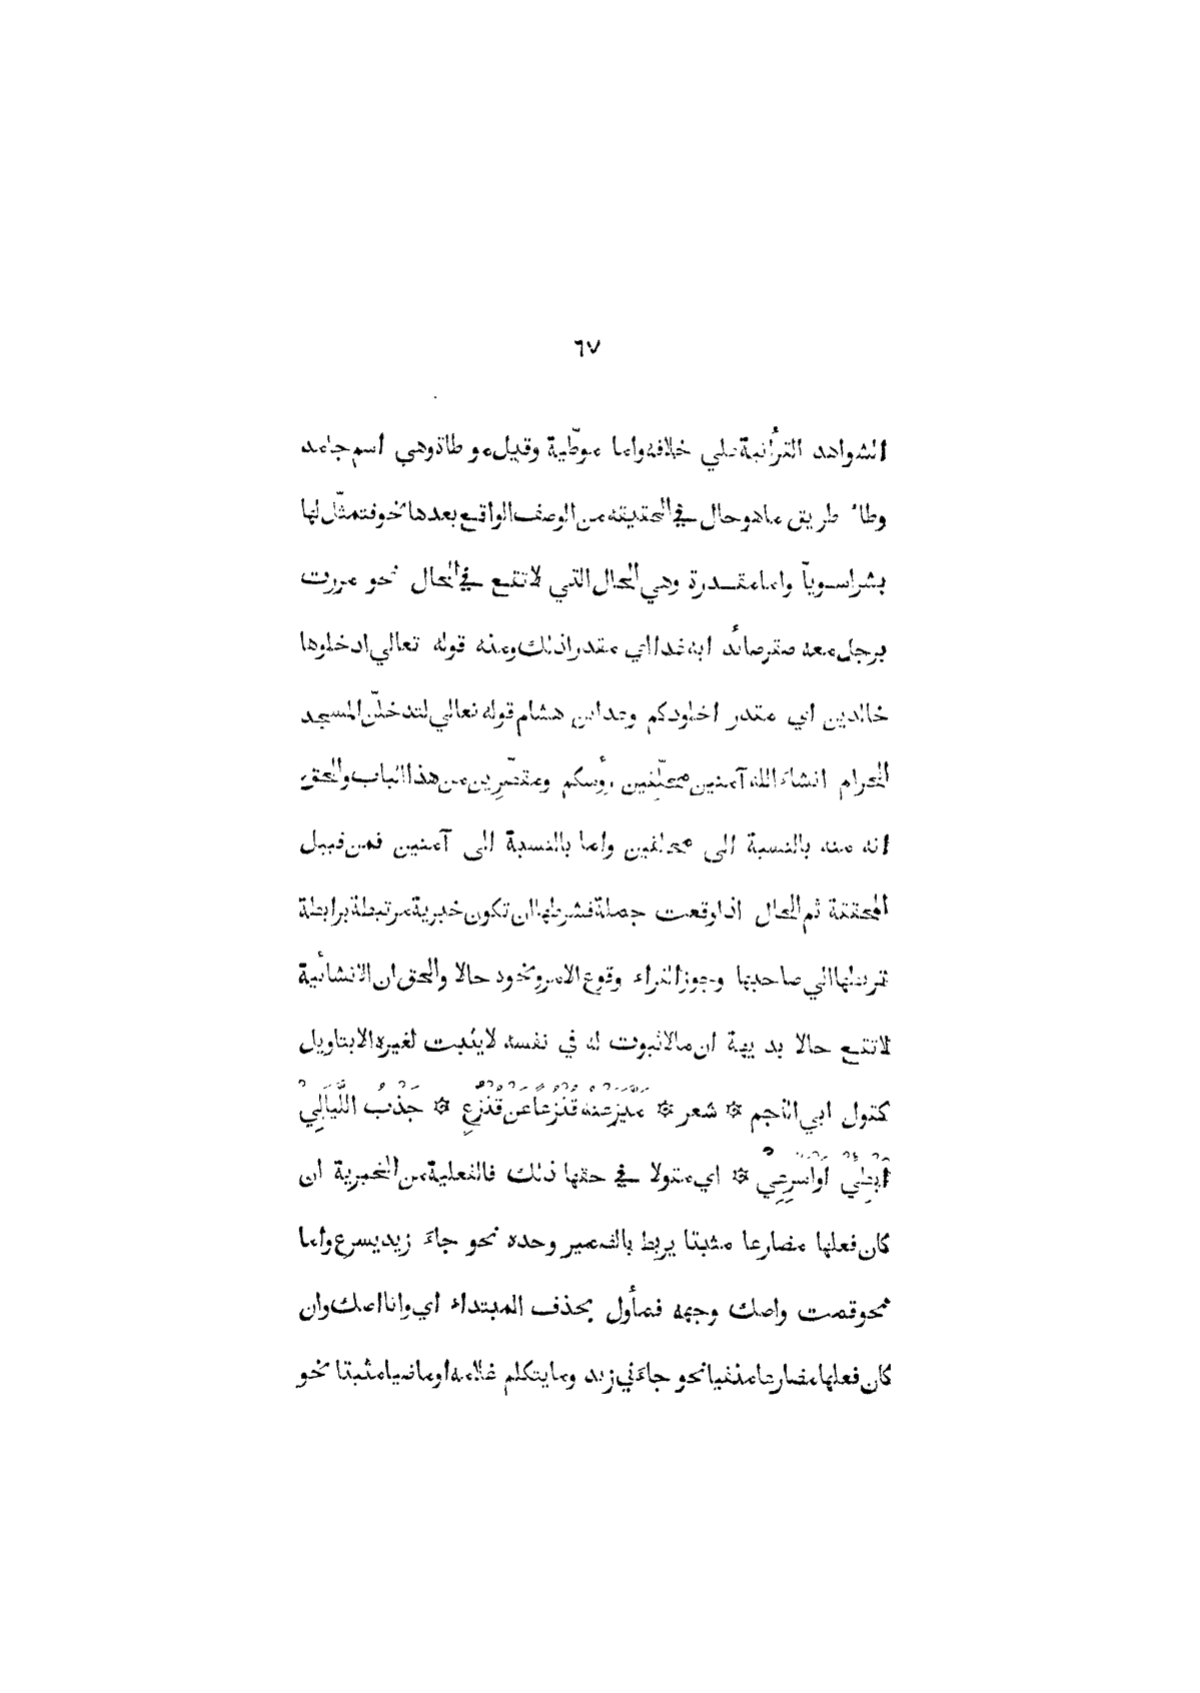 ٦٧
الشواهد القرأنية علي خلافه واما موطّية وقيل موطاة وهي اسم جامد
وطا طريق ماهو حال في الحقيقة من الوصف الواقع بعدها نحو فتمثّل لها
بشرا سويّا واما مقدرة وهي الحال التي لا تقع في الحال نحو مررت
برجل معه صقر صائد ابه غدا اي مقدرا ذلك ومنه قوله تعالي ادخلوها
خالدين اي مقدر اخلودكم وعد ابن هشام قوله تعالي لتدخلنّ المسجد
الحرام انشاء الله آمنين محلّقين رؤسكم ومقصّرين من هذا الباب والحق
انه منه بالنسبة الى محلقين واما بالنسبة الى آمنين فمن قبيل
المحققة ثم الحال اذا وقعت جملة فشرطها ان تكون خبرية مرتبطة برابطة
تربطها الي صاحبها وجوز الفراء وقوع الامر ونحوه حالا والحق ان الانشائية
لا تقع حالا بديهة ان مالا ثبوت له في نفسه لا يثبت لغيره الا بتاويل
كقول ابي النجم ۞ شعر ۞ مَيَّزَ عنه قُنْزُعًا عَن قُنْزُعِ ۞ جَذْبُ اللَّيَالِيْ
أَبْطِئِيْ أَوْ أَسْرِعِيْ ۞ اي مقولا في حقها ذلك فالفعلية من الخبرية ان
كان فعلها مضارعا مثبتا يربط بالضمير وحده نحو جاء زيد يسرع واما
نحو قمت واصك وجهه فمأول بحذف المبتداء اي وانا اصك وان
كان فعلها مضارعا منفيا نحو جاءني زيد وما يتكلم غلامه او ماضيا مثبتا نحو